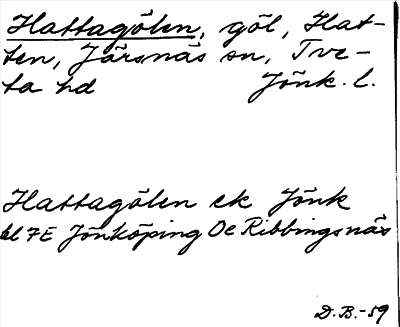 Hattagölen, göl, Hat-
ten, Järsnäs sn, Tve-
ta hd Jönk. l.
Hattagölen ek Jönk
bl 7E Jönköping Öe Ribbingsnäs
D.B.-59